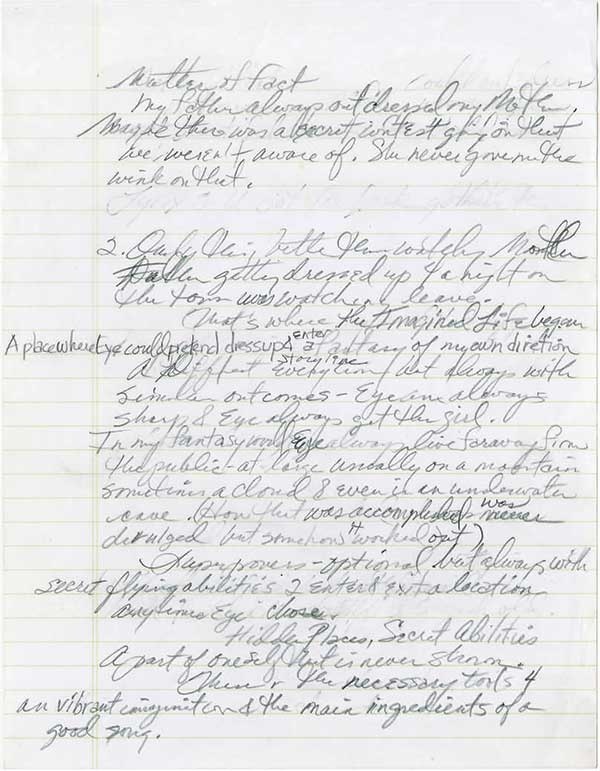 Matter of Fact
my father always outdressed my Mother.
Maybe there was a secret contest going on that
we weren't aware of. She never gave me the
wink on that.
2. Only thing better than watchng Mother
& Father getting dressed up 4 a night on
the town was watchng leave.
That's where the Imagined Life began
A place where Eye could pretend dress up & enter a fantasy of my own diretion
A Different storyline everytime but always with
similar outcomes - Eye am always
sharp & Eye always get the girl.
In my fantasy world Eye always live faraway from
the public-at-large usually on a mountain
sometimes a cloud & even in an underwater
cave. (How that was accomplished was never
divulged but somehow it worked out)
Superpowers - optional but always with
secret flying abilities 2 enter & exit a location
anytime Eye chose.
Hidden Places, Secret Abilities
A part of oneself that is never shown.
These r the necessary tools 4
an vibrant imagination & the main ingredients of a
good song.